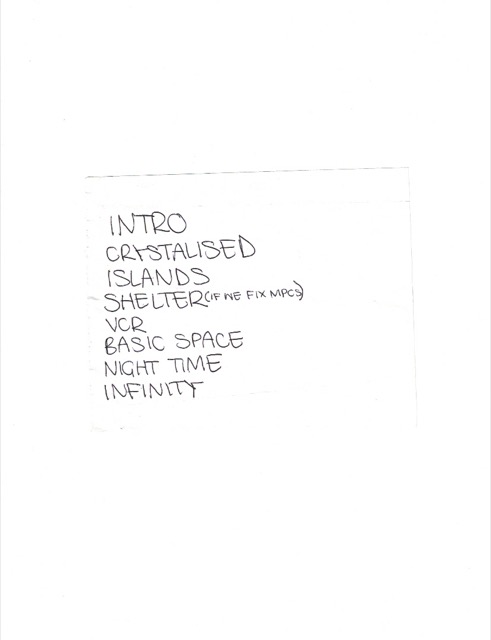 INTRO
CRYSTALISED
ISLANDS
SHELTER (IF WE FIX MPCS)
VCR
BASIC SPACE
NIGHT TIME
INFINITY